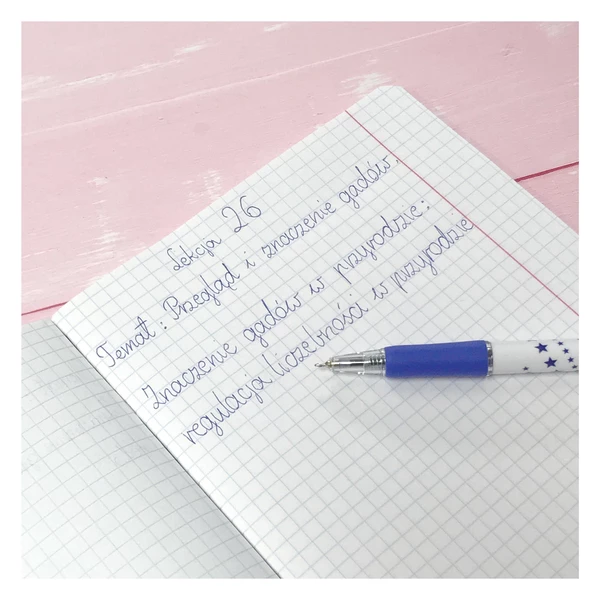 Lekcja 26
Temat: Przegląd i znaczenie gadów.
Znaczenie gadów w przyrodzie:
regulacja liczebności w przyrodzie